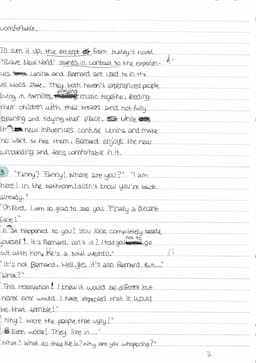 comfortable.
To sum it up, the excerpt of from Huxley's novel
"Brave New World" stands in contrast to the experien-
ces Lenina and Bernard are used to in the
World State. They both haven't experienced people
living in families, playing music together, feeding
their children with their breast and not fully
cleaning and tidying their place. While
new influences confuse Lenina and make
her want to flee them, Bernard enjoys the new
surrounding and feels comfortable in it.
3 "Fanny? Fanny! Where are you?" "I am
here! In the bathroom. I didn't know you're back
already."
"Oh Ford, I am so glad to see you. Finally a decent
face!"
happened to you? You look completely
yourself! It's Bernard, isn't it? I told you not to go
out with him. He's a total weirdo."
"It's not Bernard. Well, yes, it's also Bernard, but..."
"What?"
"This reservation! I knew it would be different but
I have expected that it would
be that terrible!"
"Why? Were the people that ugly?"
"Even worse! They live in..."
"What? What do they live in? Why are you whispering?"
2